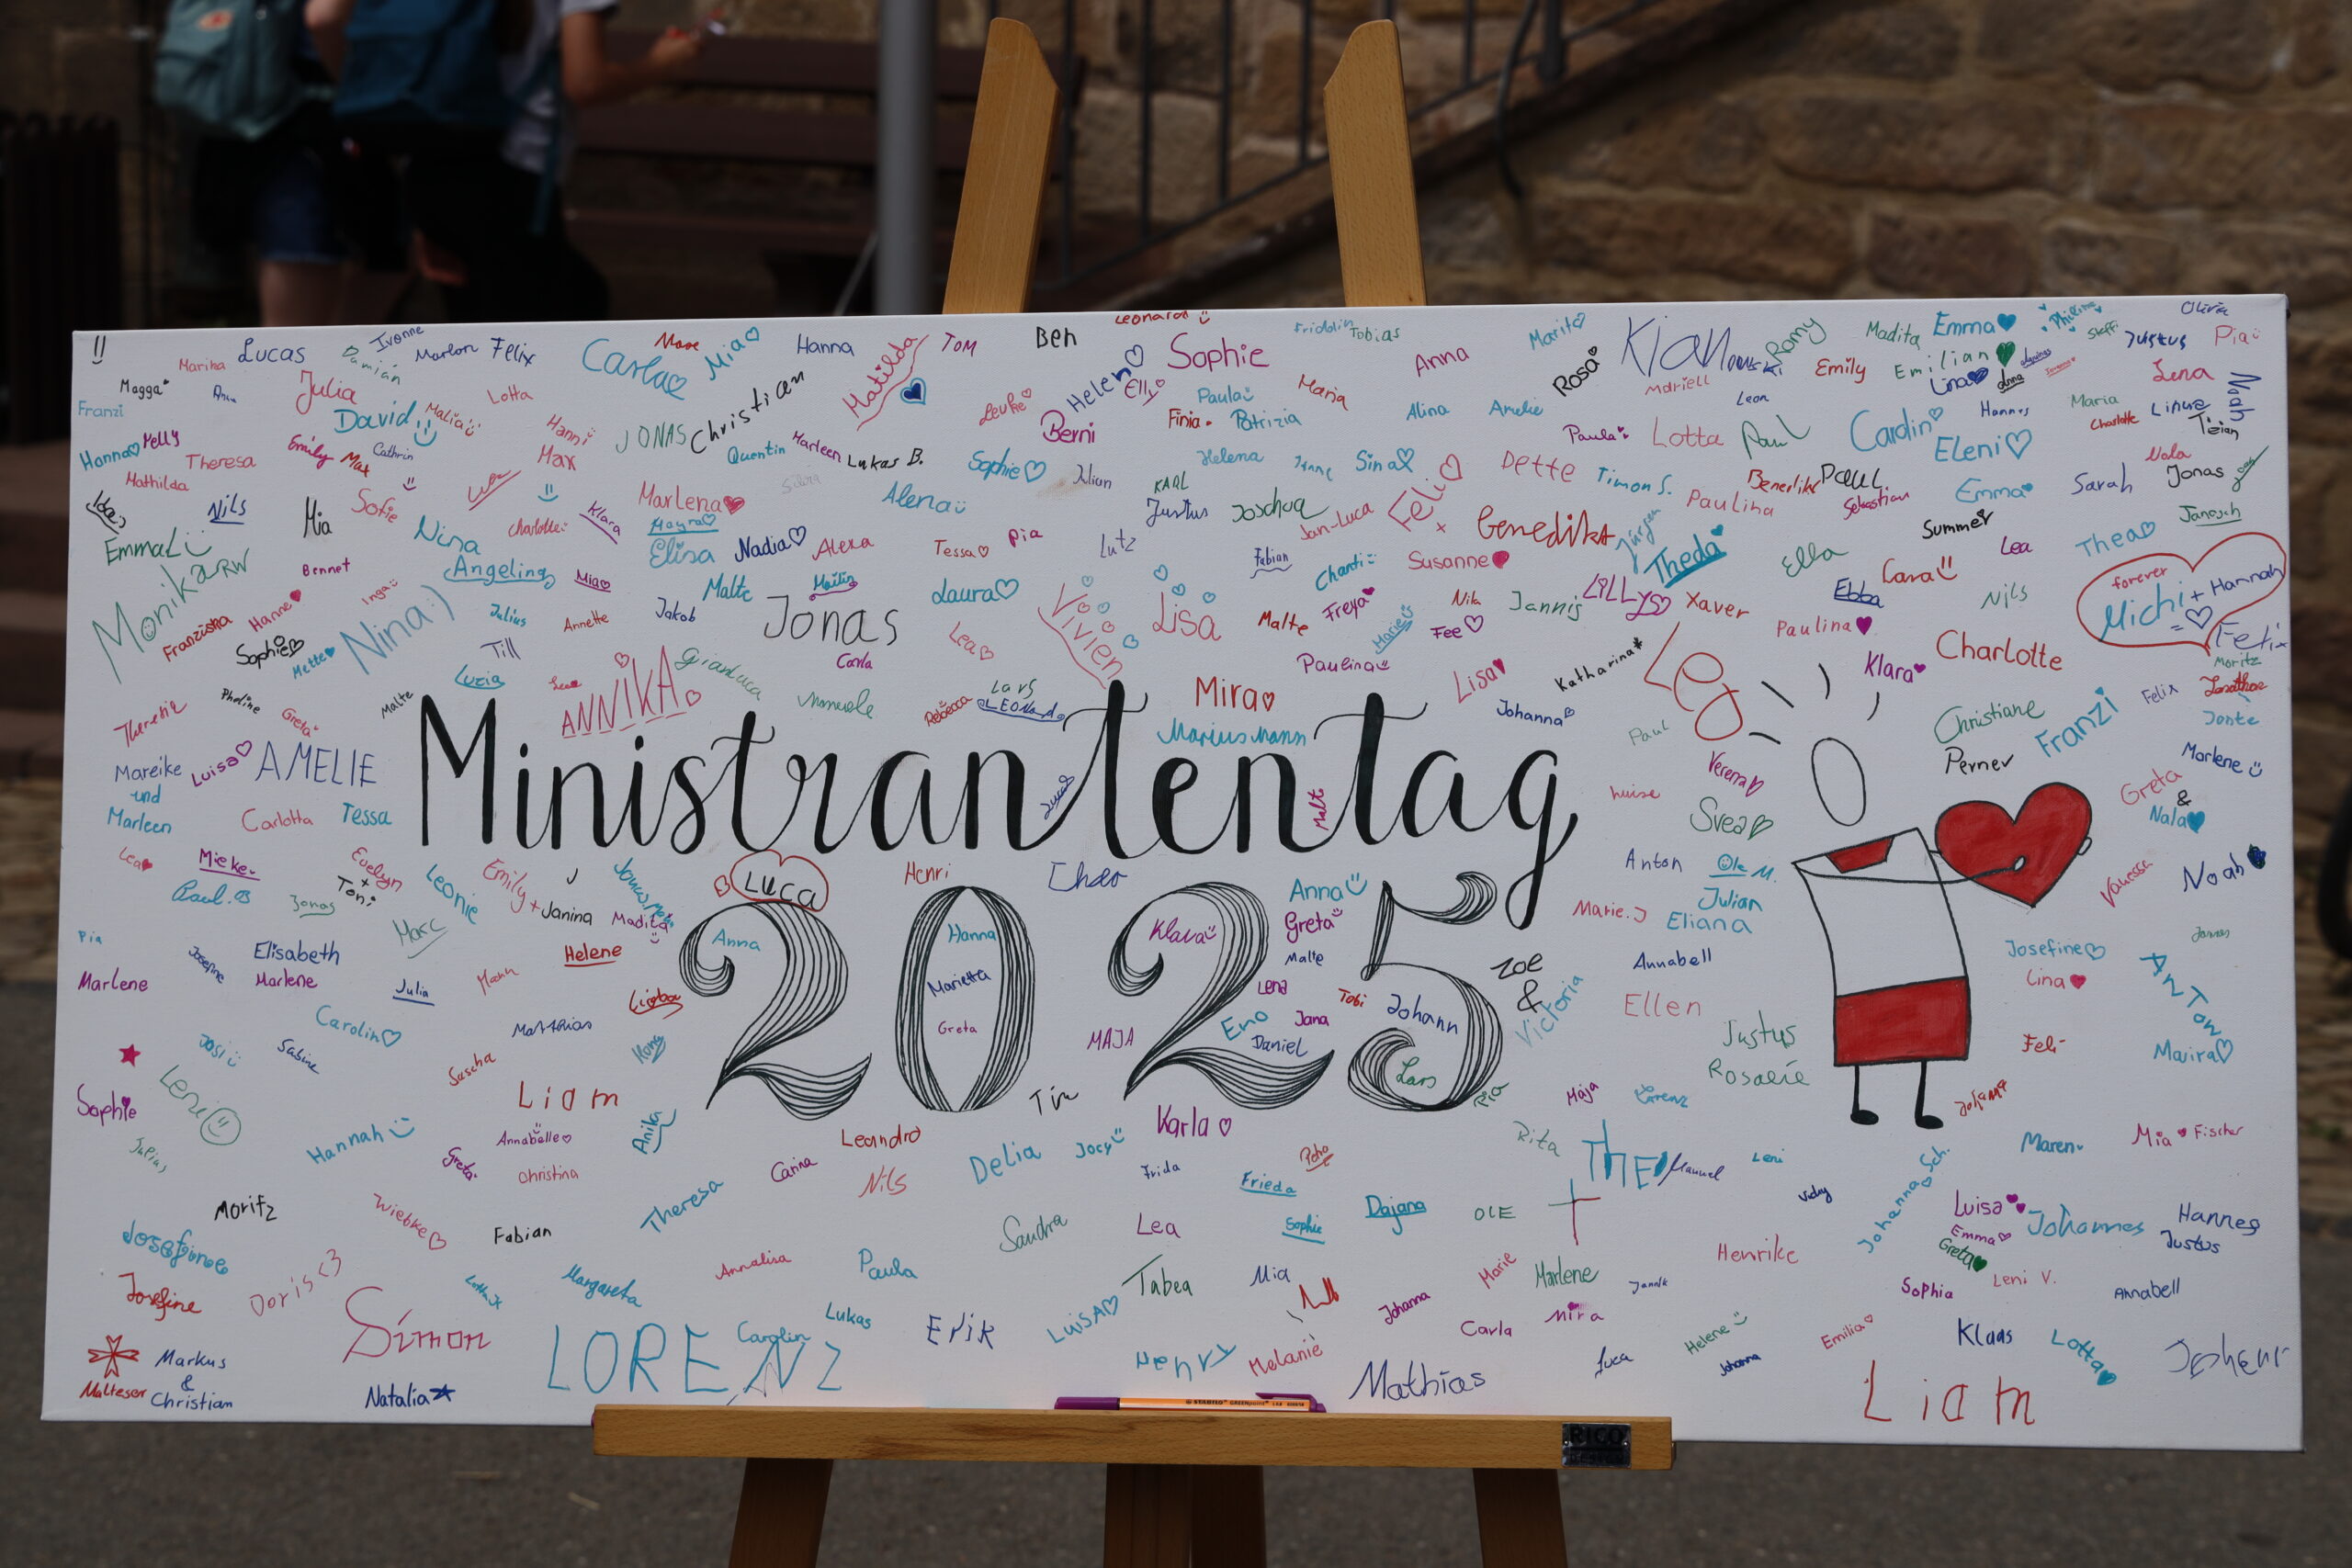 !!
Marika
Lucas
Damian
Ivonne
Marlon
Felix
Carla
Mia
Hanna
Matilda
TOM
Ben
Leonardi
Sophie
Fridolin
Tobias
Anna
Marit
Rosa
Kjan
Romy
Madita
Emma
Philine
Steffi
Olivia
Justus
Pia
Magga
Julia
Lotta
Christian
Leuke
Helen
Elly
Paula
Maria
Mariell
Emily
Emilian
Lina
Anna
Lena
Noah
Franzi
David
Malia
Hanni
JONAS
Quentin
Marleen
Lukas B.
Berni
Finia
Patrizia
Alina
Amelie
Leon
Paula
Lotta
Paul
Carolin
Hannes
Maria
Charlotte
Linus
Tizian
Hanna
Melly
Theresa
Emily
Max
Cathrin
Max
Sophie
Julian
Helena
Sina
Feli
Dette
Timon S.
Benedikt
Paul
Eleni
Nala
Jonas
Mathilda
Nils
Mia
Sofie
Klara
Marlena
Alena
KARL
Justus
Joschua
Jan-Luca
Paulina
Sebastian
Emma
Sarah
Janosch
Emma L
Nina
Charlotte
Mayra
Elisa
Nadia
Alexa
Tessa
Pia
Lutz
Fabian
Chanti
Susanne
Benedikt
Jürgen
Theda
Ella
Summer
Lara
Lea
Thea
MonikaRW
Bennet
Angelina
Mia
Malte
Mailin
Laura
Vivien
Lisa
Malte
Freya
Nila
Jannis
LILLY
Xaver
Ebba
Nils
forever
Michi + Hannah
Franziska
Hanne
Inga
Nina :)
Julius
Annette
Jakob
Jonas
Lea
Marie
Fee
Paulina
Charlotte
Felix
Sophie
Mette
Till
Luzia
ANNIKA
Gianluca
Carla
Paulina
Lisa
Katharina
Klara
Moritz
Jonathan
Pholine
Greta
Malte
Rebecca
Lars
LEONard
Mira
Johanna
Paul
Christiane
Franzi
Felix
Jonte
Mareike
und
Marleen
Luisa
AMELIE
Marius Mann
Verena
Perner
Marlene
Ministrantentag
Carlotta
Tessa
Lucas
Malt
Luise
Svea
Greta
&
Nala
Lea
Mieke
Evelyn
+
Toni
Leonie
Emily + Janina
Luca
Henri
Anna
Anton
Ole M.
Vanessa
Noah
Paul.B
Jonas
Marc
Madita
Greta
Marie.J
Julian
Eliana
Pia
Josefine
Elisabeth
Helene
2025
Anna
Hanna
Klara
Malte
Zoe
&
Victoria
Annabell
Josefine
Jannes
Marlene
Marlene
Julia
Marietta
Lena
Tobi
Johann
Ellen
Lina
Anton
Carolin
Matthias
Greta
MAJA
Eno
Jana
Daniel
Justus
Feli
Maira
Josi
Sabine
Sascha
Lars
Rosalie
Sophie
Leni
Liam
Tim
Pia
Maja
Lorenz
Johanna
Julius
Hannah
Annabelle
Anika
Leandro
Karla
Rita
THEO
Manuel
Leni
Maren
Mia Fischer
Greta
Christina
Carina
Nils
Delia
Jocy
Frida
Frieda
Vicky
Johanna Sch.
Moritz
Wiebke
Fabian
Theresa
Sandra
Lea
Sophie
Dajana
OLE
Luisa
Emma
Greta
Johannes
Hannes
Justus
Josefine
Josefine
Doris <3
Margareta
Annalisa
Paula
Tabea
Mia
Marie
Marlene
Jannik
Henrike
Sophia
Leni V.
Annabell
Simon
LORENZ
Carolin
Lukas
Erik
LuisA
Johanna
Carla
Mira
Helene
Emilia
Klaas
Lotta
Malteser
Markus
&
Christian
Natalia
Henry
Melanie
Mathias
Luca
Johanna
Liam
RICO